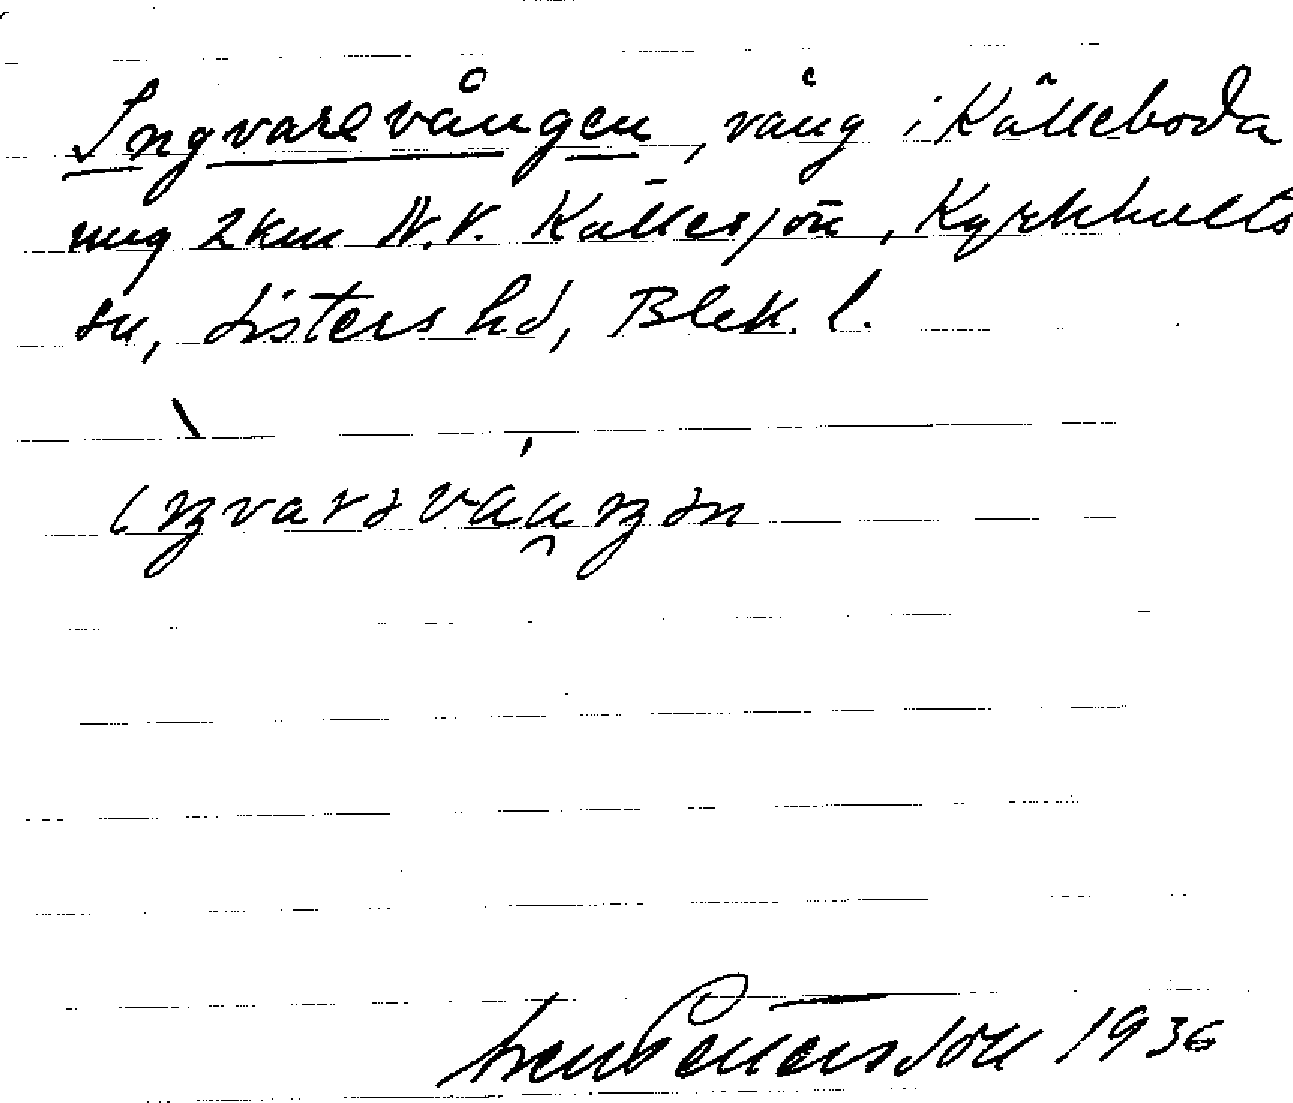 Ingvarevången, vång i Källeboda
ung 2 km N.V. Källesjön, Kyrkhults
sn, Listers hd, Blek. l.
Sven Pettersson 1936